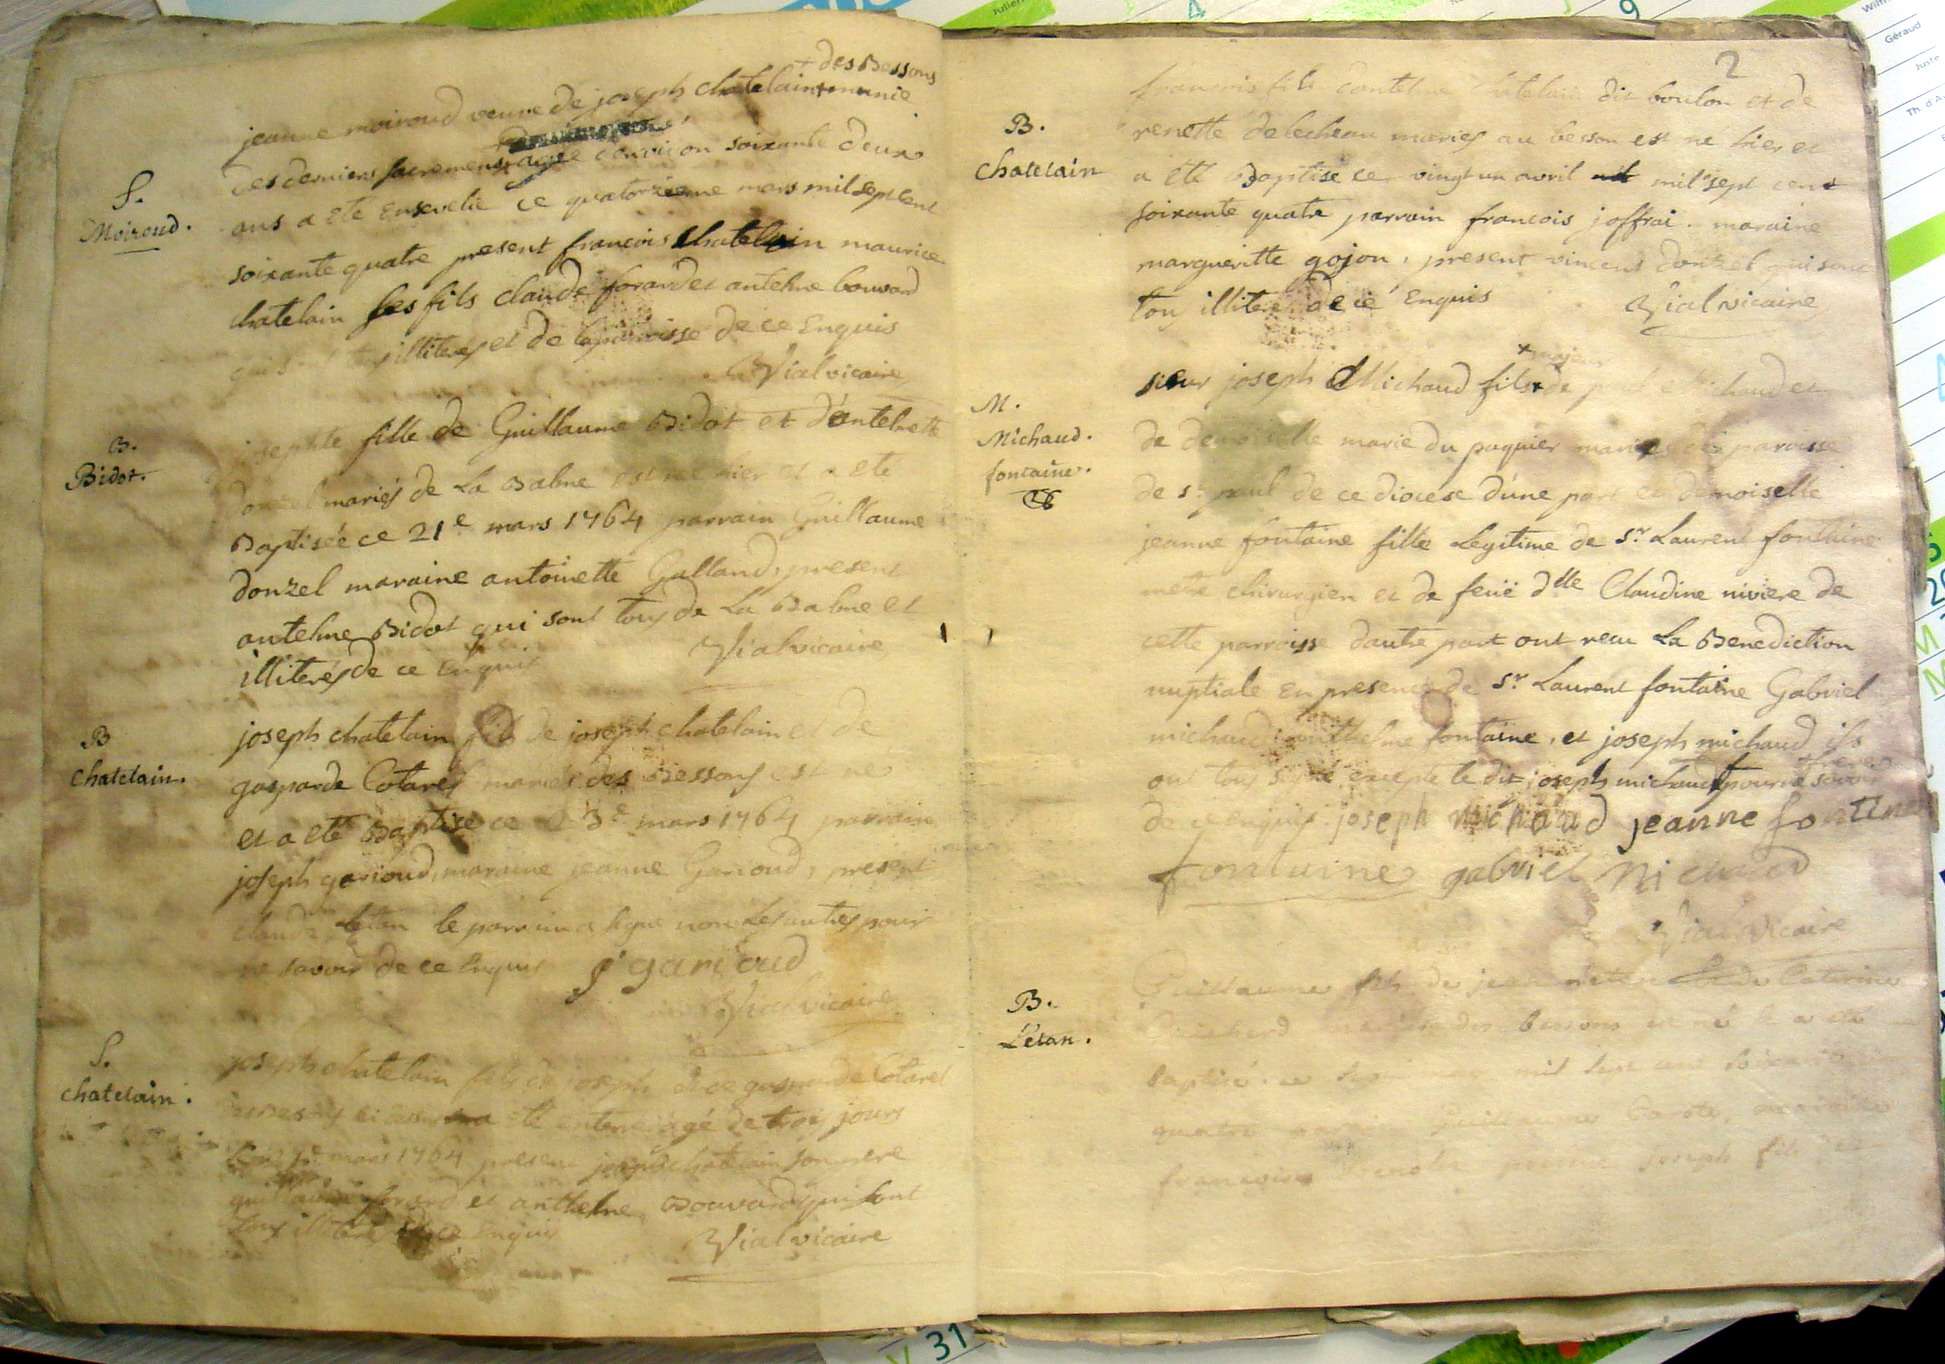 + des Bessons
jeanne moiroud veuve de joseph chatelain + munie
des derniers sacremens agée d'environ soixante deux
S.
Moiroud.
ans a eté Ensevelie ce quatorzieme mars mil sept cent
soixante quatre present francois chatelain maurice
chatelain ses fils claude forand et antelme bouvard
illiterés et de la paroisse de ce Enquis
Vial vicaire
B.
Bidot.
josephte fille de Guillaume Bidot et d'antelmette
donzel mariés de La Balme est née hier et a eté
Baptisée ce 21e mars 1764 parrain Guillaume
donzel maraine antoinette Galland, present
antelme Bidot qui sont tous de La Balme et
illiterés de ce Enquis Vial vicaire
B
Chatelain.
joseph chatelain fils de joseph chatelain et de
gasparde Cotarel mariés des Bessons est né
et a eté Baptisé ce 23e mars 1764 parrain
joseph garioud, maraine jeanne Garioud, present
claude letan le parrain a signé non Les autres pour
ne savoir de ce Enquis j garioud
Vial vicaire
S.
chatelain.
joseph chatelain fils de joseph et de gasparde Cotarel
a eté enterré agé de trois jours
mars 1764 present joseph chatelain son pere
forand et anthelme Bouvard qui sont
tous illiterés de ce Enquis
Vial vicaire
2
B.
Chatelain
francois fils d'antelme chatelain dit boulon et de
renette delecheau mariés au besson est né hier et
a eté Baptisé ce vingt un avril mil sept cent
soixante quatre parrain francois joffrai. maraine
margueritte gojon, present vincent donzel qui sont
tous illiterés de ce Enquis Vial vicaire
M.
Michaud.
fontaine.
+ majeur
sieur joseph Michaud fils + de paul Michaud et
de demoiselle marie du paquier mariés de la paroisse
de st paul de ce diocese d'une part et demoiselle
jeanne fontaine fille Legitime de Sr Laurent fontaine
metre chirurgien et de feüe dlle Claudine niviere de
cette parroisse dautre part ont recu La Benediction
nuptiale En presence de Sr Laurent fontaine Gabriel
michaud anthelme fontaine, et joseph michaud ils
ont tous signé excepte le dit joseph michaud + pour ne savoir
+ frere
de ce enquis joseph michaud jeanne fontene
fontaine gabriel Michaud
Vial vicaire
B.
Létan.
Guillaume fils de jean letan et de Caterine
Guichard mariés des bessons est né et a eté
baptisé ce sept may mil sept cent soixante
quatre parrain Guillaume maraine
francoise present joseph fils de